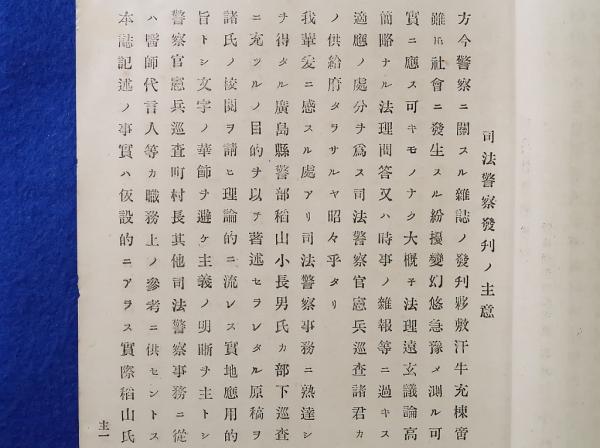 司法警察發刋ノ主意
方今警察ニ關スル雜誌ノ發刋夥敷汗牛充棟啻
雖𪜈社會ニ發生スル紛擾變幻悠急豫メ測ル可
實ニ應ス可キモノナク大概子法理遠玄議論高
簡略ナル法理問答又ハ時事ノ雜報等ニ過キス
適應ノ處分ヲ爲ス司法警察官憲兵巡査諸君カ
ノ供給府タラサルヤ昭々乎タリ
我輩爰ニ感スル處アリ司法警察事務ニ熟達シ
ヲ得タル廣島縣警部稻山小長男氏カ部下巡査
ニ充ツルノ目的ヲ以テ著述セラレタル原稿ヲ
諸氏ノ校閱ヲ請ヒ理論的ニ流レス實地應用的
旨トシ文字ノ華師ヲ避ケ主義ノ明晣ヲ主トシ
警察官憲兵巡査町村長其他司法警察事務ニ從
ハ醫師代言人等カ職務上ノ參考ニ供セントス
本誌記述ノ事實ハ仮設的ニアラス實際稻山氏
主一